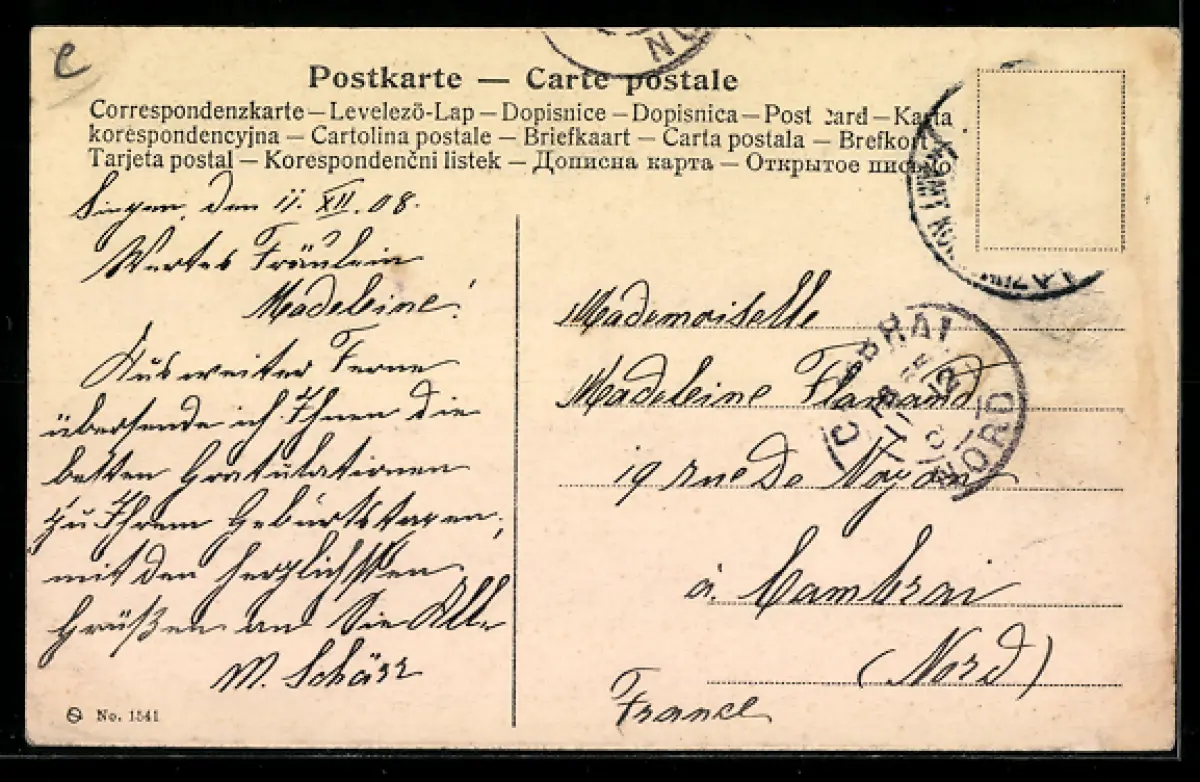 e
Postkarte — Carte postale
Correspondenzkarte — Levelező-Lap — Dopisnice — Dopisnica — Post Card — Karta
korespondencyjna — Cartolina postale — Briefkaart — Carta postala — Brefkort
Tarjeta postal — Korespondenčni listek — Дописна карта — Открытое письмо
Singen, den 11. XII. 08.
Wertes Fräulein
Madeleine!
Aus weiter Ferne
übersende ich Ihnen die
besten Gratulationen
zu Ihrem Geburtstage,
mit den herzlichsten
Grüßen an Sie Alle
M. Schärr
Mademoiselle
Madeleine Flamand
19 rue De Noyon
à Cambrai
(Nord)
France
CAMBRAI
NORD
No. 1541